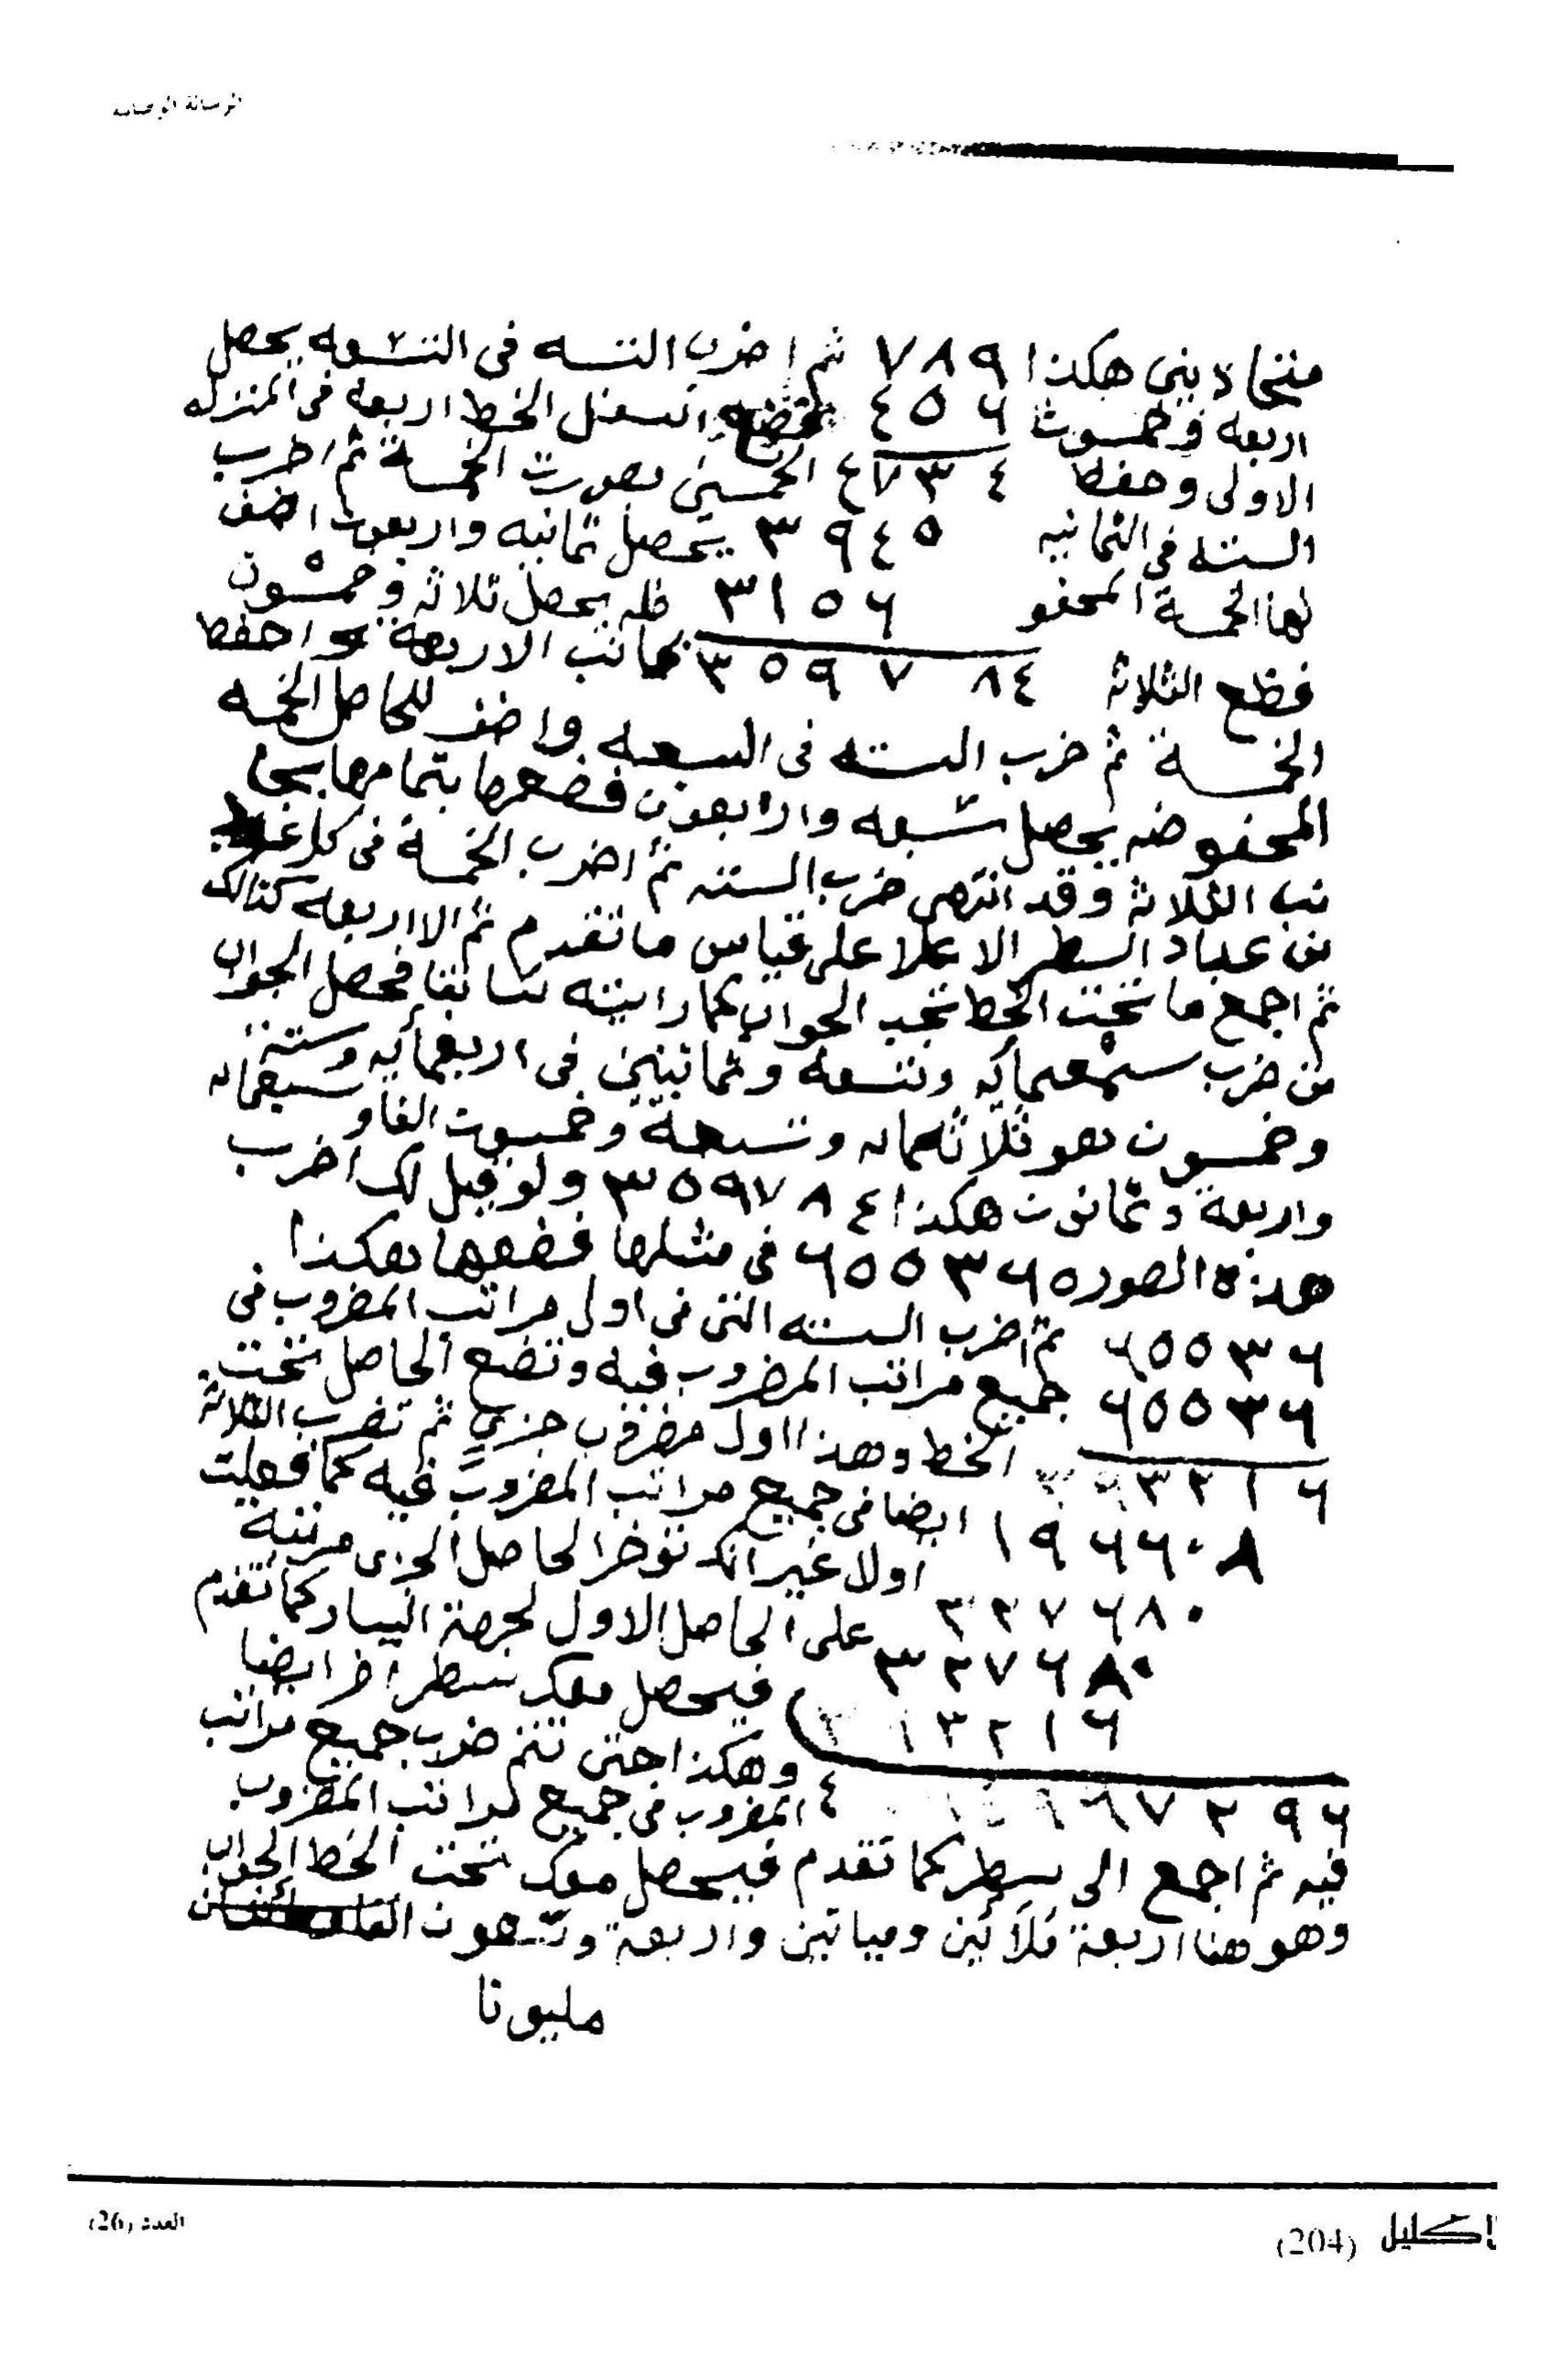 متحاديين هكذا ٧٨٩ ثم اضرب الستة في التسعه يحصل
اربعه وخمسون ٤٥٦ اسفل الخط اربعه في المنزله
الاولى وحفظ ٤٧٣٤ الخمسين بصورت الخمسة ثم اضرب
السته في الثمانيه ٣٩٤٥ يحصل ثمانيه واربعون اضف
لها الخمسة المحفو ٣١٥٦ ظه يحصل ثلاثه وخمسون
فضع الثلاثه ٣٥٩٧٨٤ بجانب الاربعة واحفظ
الخمسة ثم ضرب السته في السبعه واضف للحاصل الخمسه
المحفوضه يحصل سبعه واربعون فضعها بتمامها بجا
نب الثلاثه وقد انتهى ضرب السته ثم اضرب الخمسة في كل
من عداد السطر الاعلا على قياس ما تقدم ثم الاربعه كذالك
ثم اجمع ما تحت الخط تجد الجواب كما رايته سابقا فحصل الجواب
من ضرب سبعمايه وتسعه وثمانيين في اربعمأيه وستة
وخمسون هو ثلاثمايه وتسعة وخمسون الفا وسبعمايه
واربعة وثمانون هكذا ٣٥٩٧٨٤ ولو قيل لك اضرب
هذه الصوره ٦٥٥٣٦ في مثلها فضعها هكذا
٦٥٥٣٦ ثم اضرب السته التي في اول مراتب المضروب في
٦٥٥٣٦ جميع مراتب المضروب فيه وتضع الحاصل تحت
٣٩٣٢١٦ الخط وهذا اول مضروب جزي ثم تضرب الثلاثة
١٩٦٦٠٨ ايضا في جميع مراتب المضروب فيه كما فعلت
اولا غير انك توخر الحاصل الجزى مرتبة
٣٢٧٦٨٠ على الحاصل الاول لجهة اليسار كما تقدم
٣٢٧٦٨٠ فيحصل معك سطر اخر ايضا
٣٩٣٢١٦ وهكذا حتى تتم ضرب جميع مراتب
٤٢٩٤٩٦٧٢٩٦ المضروب في جميع مراتب المضروب
فيه ثم اجمع الى سطر كما تقدم فيحصل معك تحت الخط الجواب
وهو هنا اربعة وميأتين واربعة وتسعون
مليونا
العدد (26)
(204) إكليل